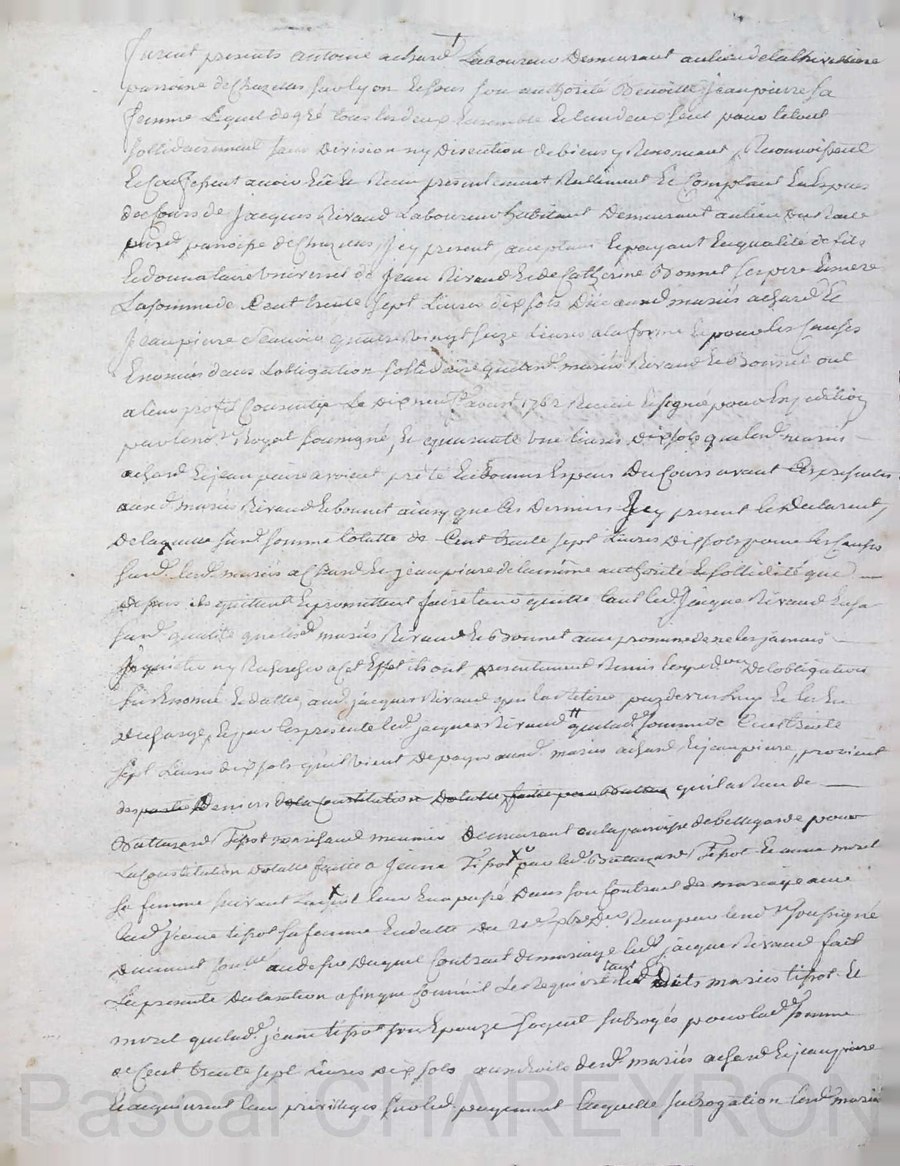 furent presents antoine achard Laboureur Demeurant au lieu de la
paroisse de Chazelles sur lyon et sous son authorité Benoitte jeanpierre sa
femme Lequel de gré tous les deux Ensemble et l'un deux seul pour le tout
sollidairement sans Division ny Discution de biens y Renonceant, Reconnoissent
et Confessent avoir Eü et Receu presentement Reellement Et Comptant En Especes
de Cours de Jacques Rivaud Laboureur habitant Demeurant au lieu
paroisse de Chazelles, Icy present, acceptant Et payant En qualité de fils
Et donnataire Universel de Jean Rivaud Et de Catherine Bonnet ses pere Et mere
La somme de Cent trente sept Livres dix sols Düe aux d. mariés achard Et
Jeanpierre Scavoir quatre vingt seize Livres a la forme Et pour les Causes
Enoncées dans L'obligation sollidaire que les d. mariés Rivaud Et Bonnet ont
a leur profit Consentie Le Dix neuf avril 1762 Receüe Et signé pour Expedition
par le no.re Royal soussigné, Et quarante Une livres Dix sols que les d. mariés
achard Et jeanpierre avoient preté Et donnés Especes Du Cours avant Ces presentes
aux d. mariés Rivaud Et bonnet ainsy que Ces Derniers Icy present le Declarent,
De laquelle sus d. somme totalle de Cent trente sept Livres Dix sols pour les Causes
sus d. les d. mariés achard Et jeanpierre de la même authorité Et sollidité que
Dessus ils quittent Et promettent faire tenir quitte tant led. Jacques Rivaud En sa
sus d. qualité que les d. mariés Rivaud Et Bonnet avec promesse de ne les jamais
Inquietter ny Rechercher a Cet Effet ils ont presentement Remis L'expedition De l'obligation
sus Enoncé Et dattée, aud. jacques Rivaud qui l'a Retirée pardevers luy Et la En
Decharge, Et par Ces presentes led. jacques Rivaud que lad. somme de Cent trente
sept Livres dix sols qu'il vient De payer aux d. mariés achard Et jeanpierre, provient
des Deniers de la Constitution Dotalle qu'il a Receu de
Balthazard Tissot marchand meunier Demeurant En la paroisse de bellegarde pour
La Constitution Dotalle faitte a Jeanne Tissot par led. Balthazard Tissot Et anne morel
sa femme suivant leur En a passé Dans son Contract de mariage avec
lad. Jeanne tissot sa femme En datte Du Receu par led. no.re soussigné
Dument Controllé au desir Duquel Contract de mariage led. jacques Rivaud fait
La presente Declaration afin que Comme il Le Requiert tant les Dits mariés tissot Et
morel que lad. jeanne tissot son Epouze soyent subrogés pour lad. somme
de Cent trente sept Livres Dix sols aux droits des d. mariés achard Et jeanpierre
Et acquierent leur privilleges sur led. payement Laquelle subrogation les d. mariés
Pascal CHAREYRON